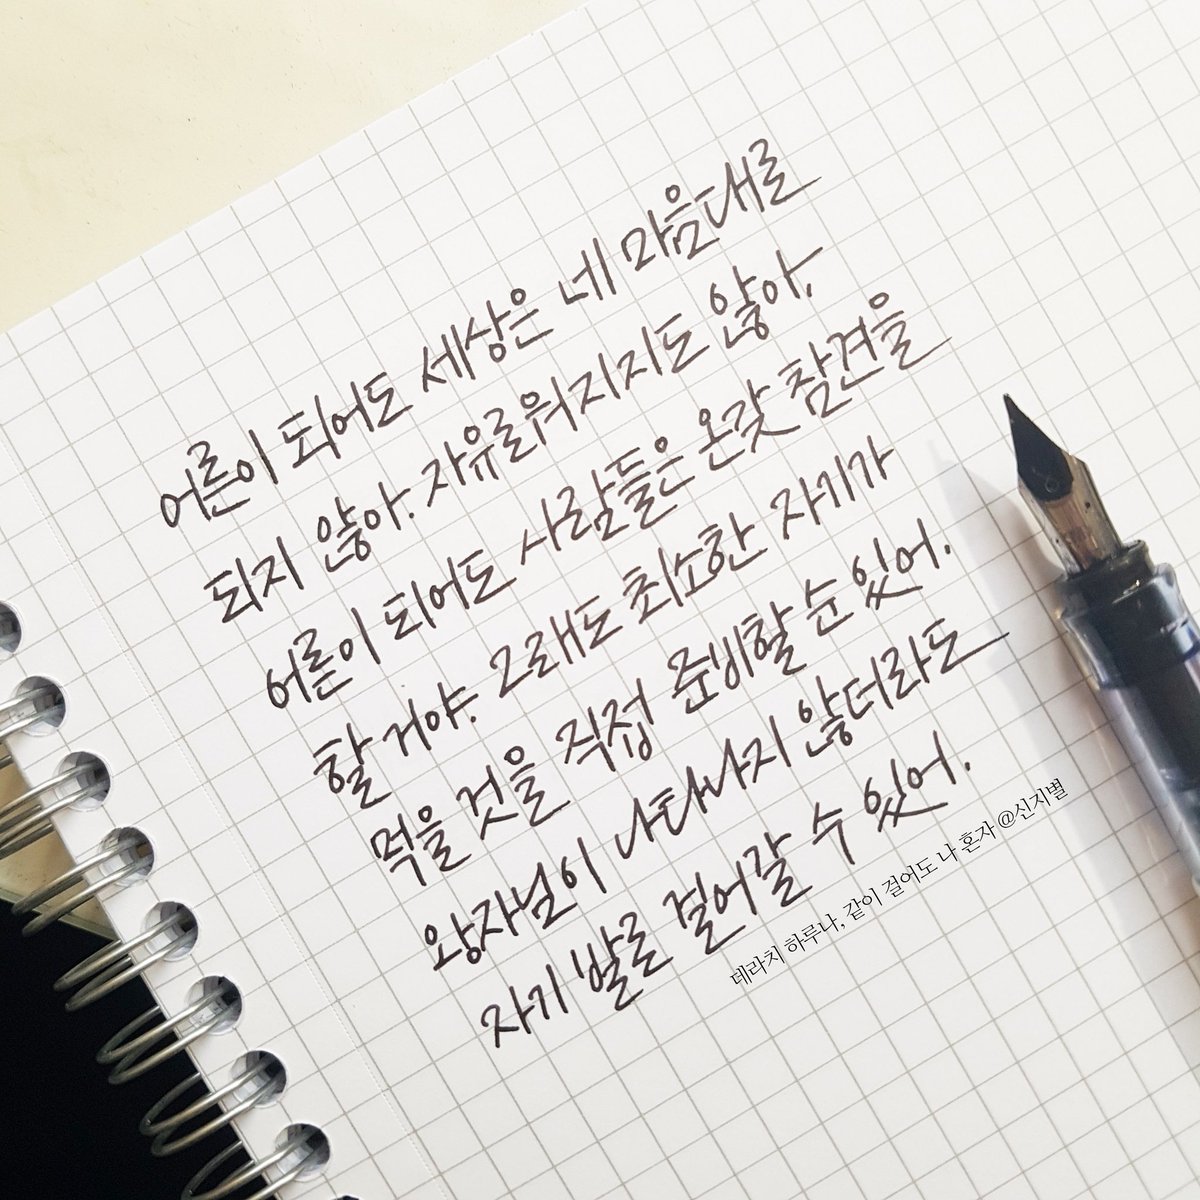 어른이 되어도 세상은 네 마음대로
되지 않아. 자유로워지지도 않아.
어른이 되어도 사람들은 온갖 참견을
할 거야. 그래도 최소한 자기가
먹을 것을 직접 준비할 순 있어.
왕자님이 나타나지 않더라도
자기 발로 걸어갈 수 있어.
데라치 하루나, 같이 걸어도 나 혼자 @신지별